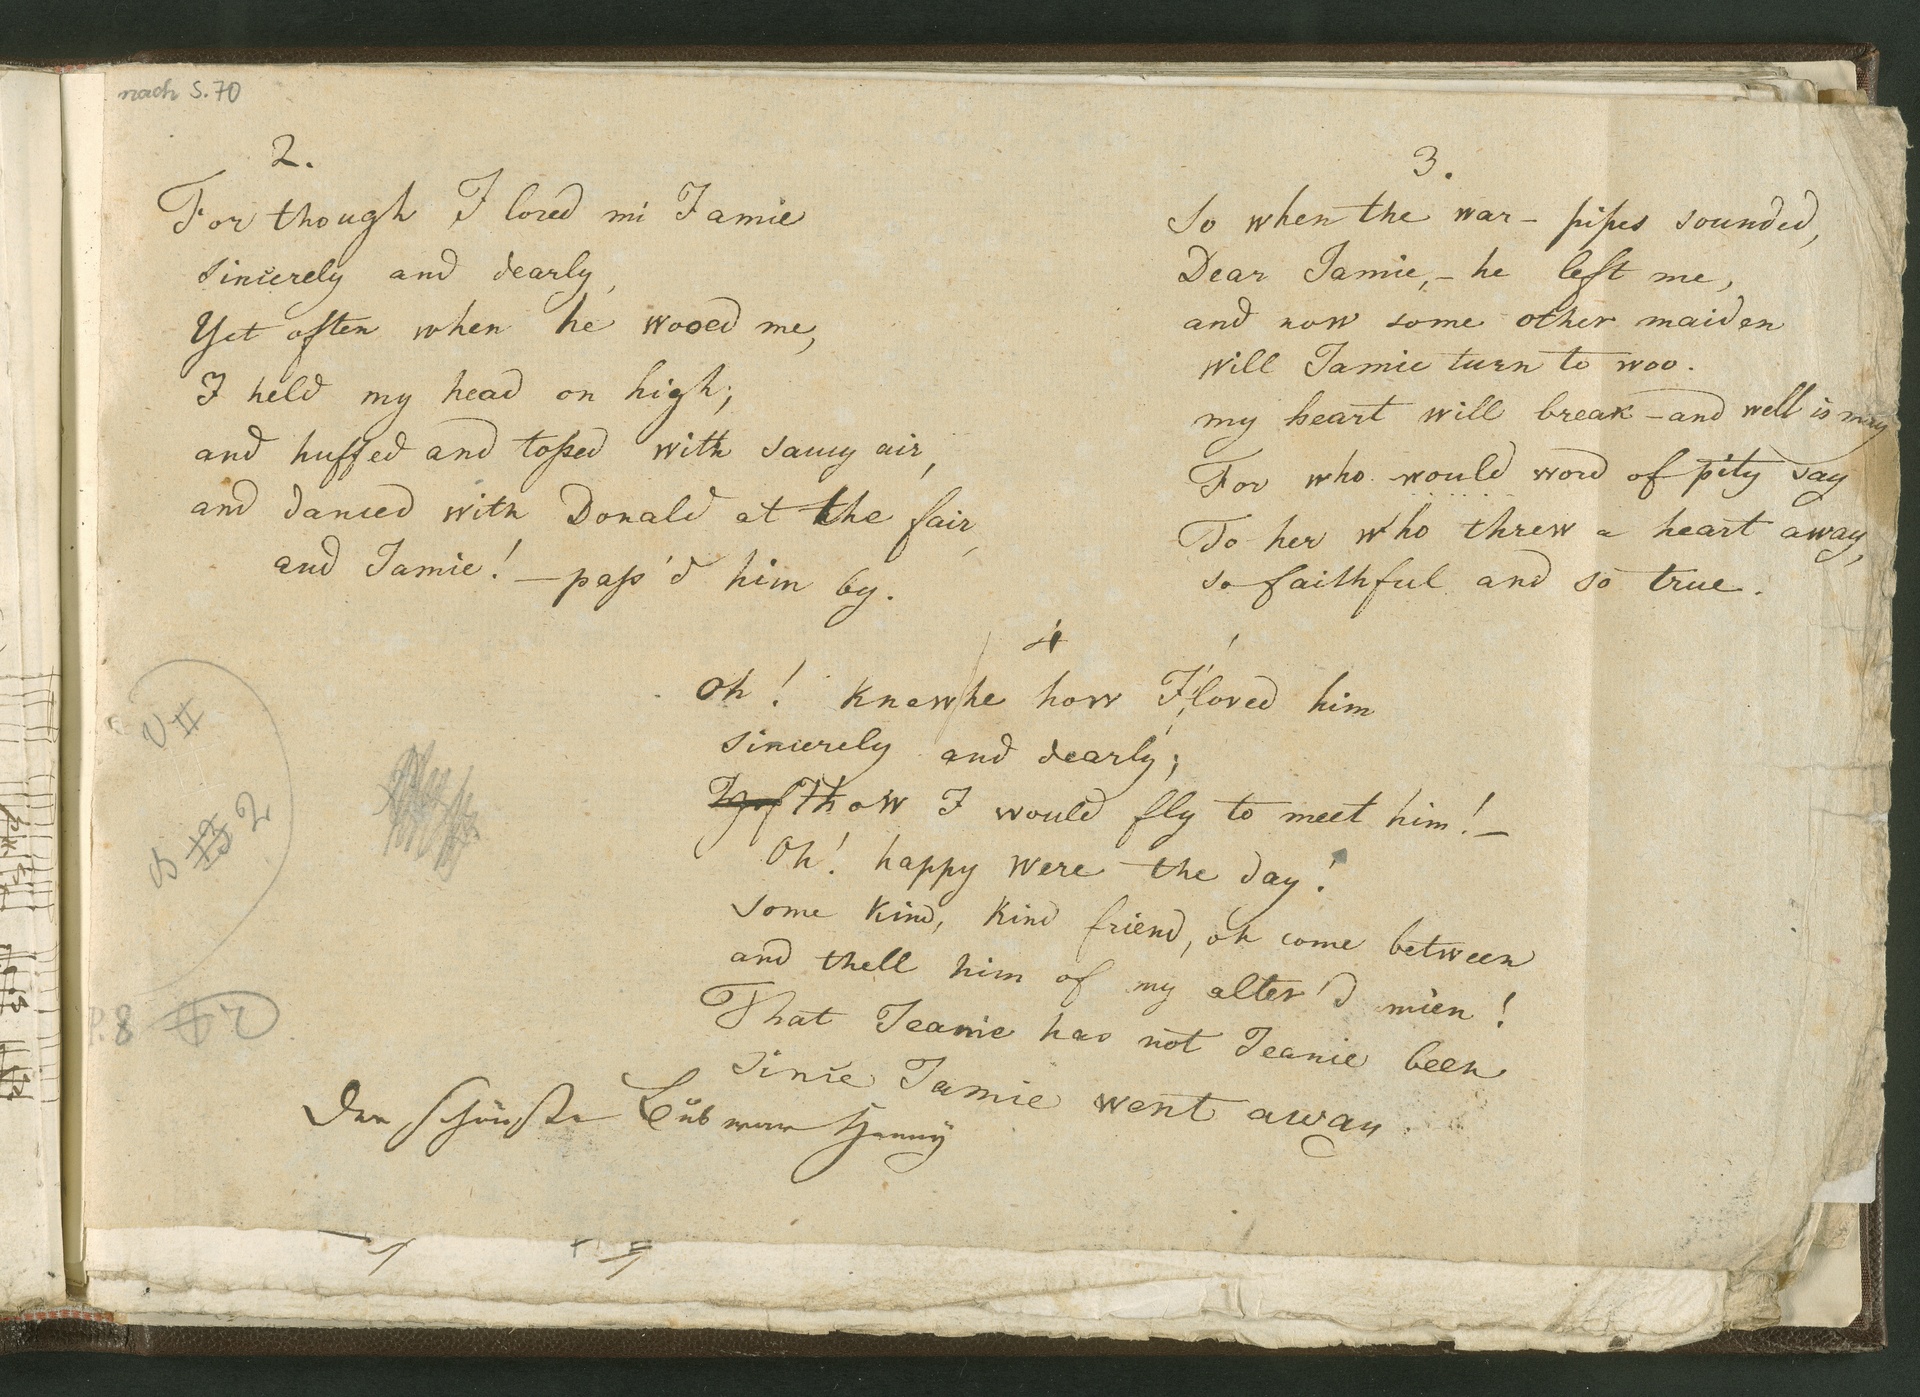 nach S. 70
2.
For though I loved mi Jamie
sincerely and dearly,
Yet often when he wooed me,
I held my head on high;
and huffed and toßed with saucy air,
and danced with Donald at the fair,
and Jamie! – paß'd him by.
3.
So when the war – pipes sounded,
Dear Jamie, – he left me,
and now some other maiden
will Jamie turn to woo.
my heart will break – and well is may
For who would word of pity say
To her who threw a heart away,
so faithful and so true.
4
Oh! knew he how I loved him
sincerely and dearly;
how I would fly to meet him! –
Oh! happy were the day!
some kind, kind friend, oh come between
and thell him of my alter'd mien!
That Jeanie has not Jeanie been
since Jamie went away.
Der schönste Bub war Henny
# 2